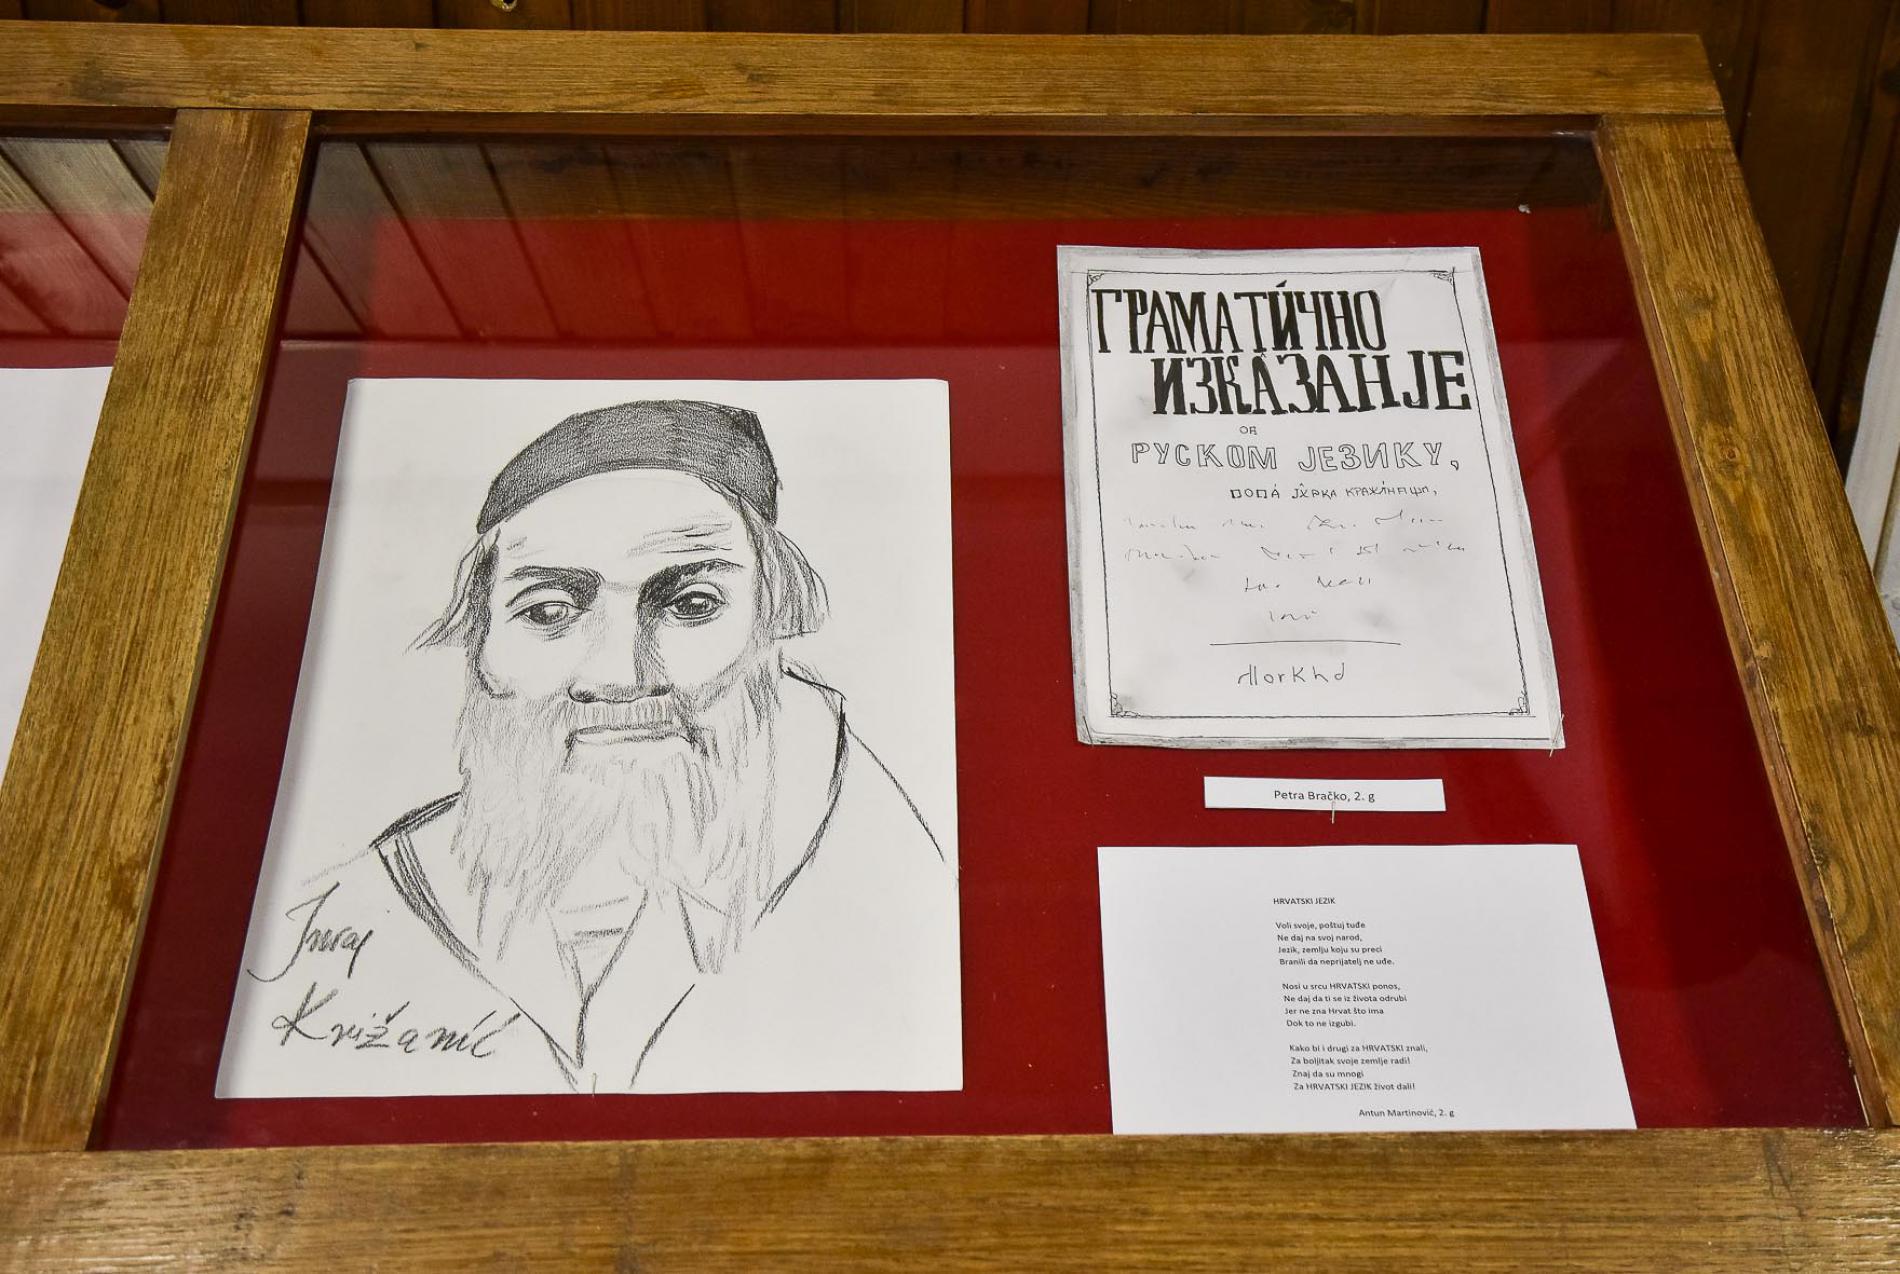 Juraj
Križanić
ГРАМАТИ́ЧНО
ИЗКА̂ЗАНЈЕ
ОБ
РУСКОМ ЈЕЗИКУ,
ПОПА́
Petra Bračko, 2. g
HRVATSKI JEZIK
Voli svoje, poštuj tuđe
Ne daj na svoj narod,
Jezik, zemlju koju su preci
Branili da neprijatelj ne uđe.
Nosi u srcu HRVATSKI ponos,
Ne daj da ti se iz života odrubi
Jer ne zna Hrvat što ima
Dok to ne izgubi.
Kako bi i drugi za HRVATSKI znali,
Za boljitak svoje zemlje radi!
Znaj da su mnogi
Za HRVATSKI JEZIK život dali!
Antun Martinović, 2. g